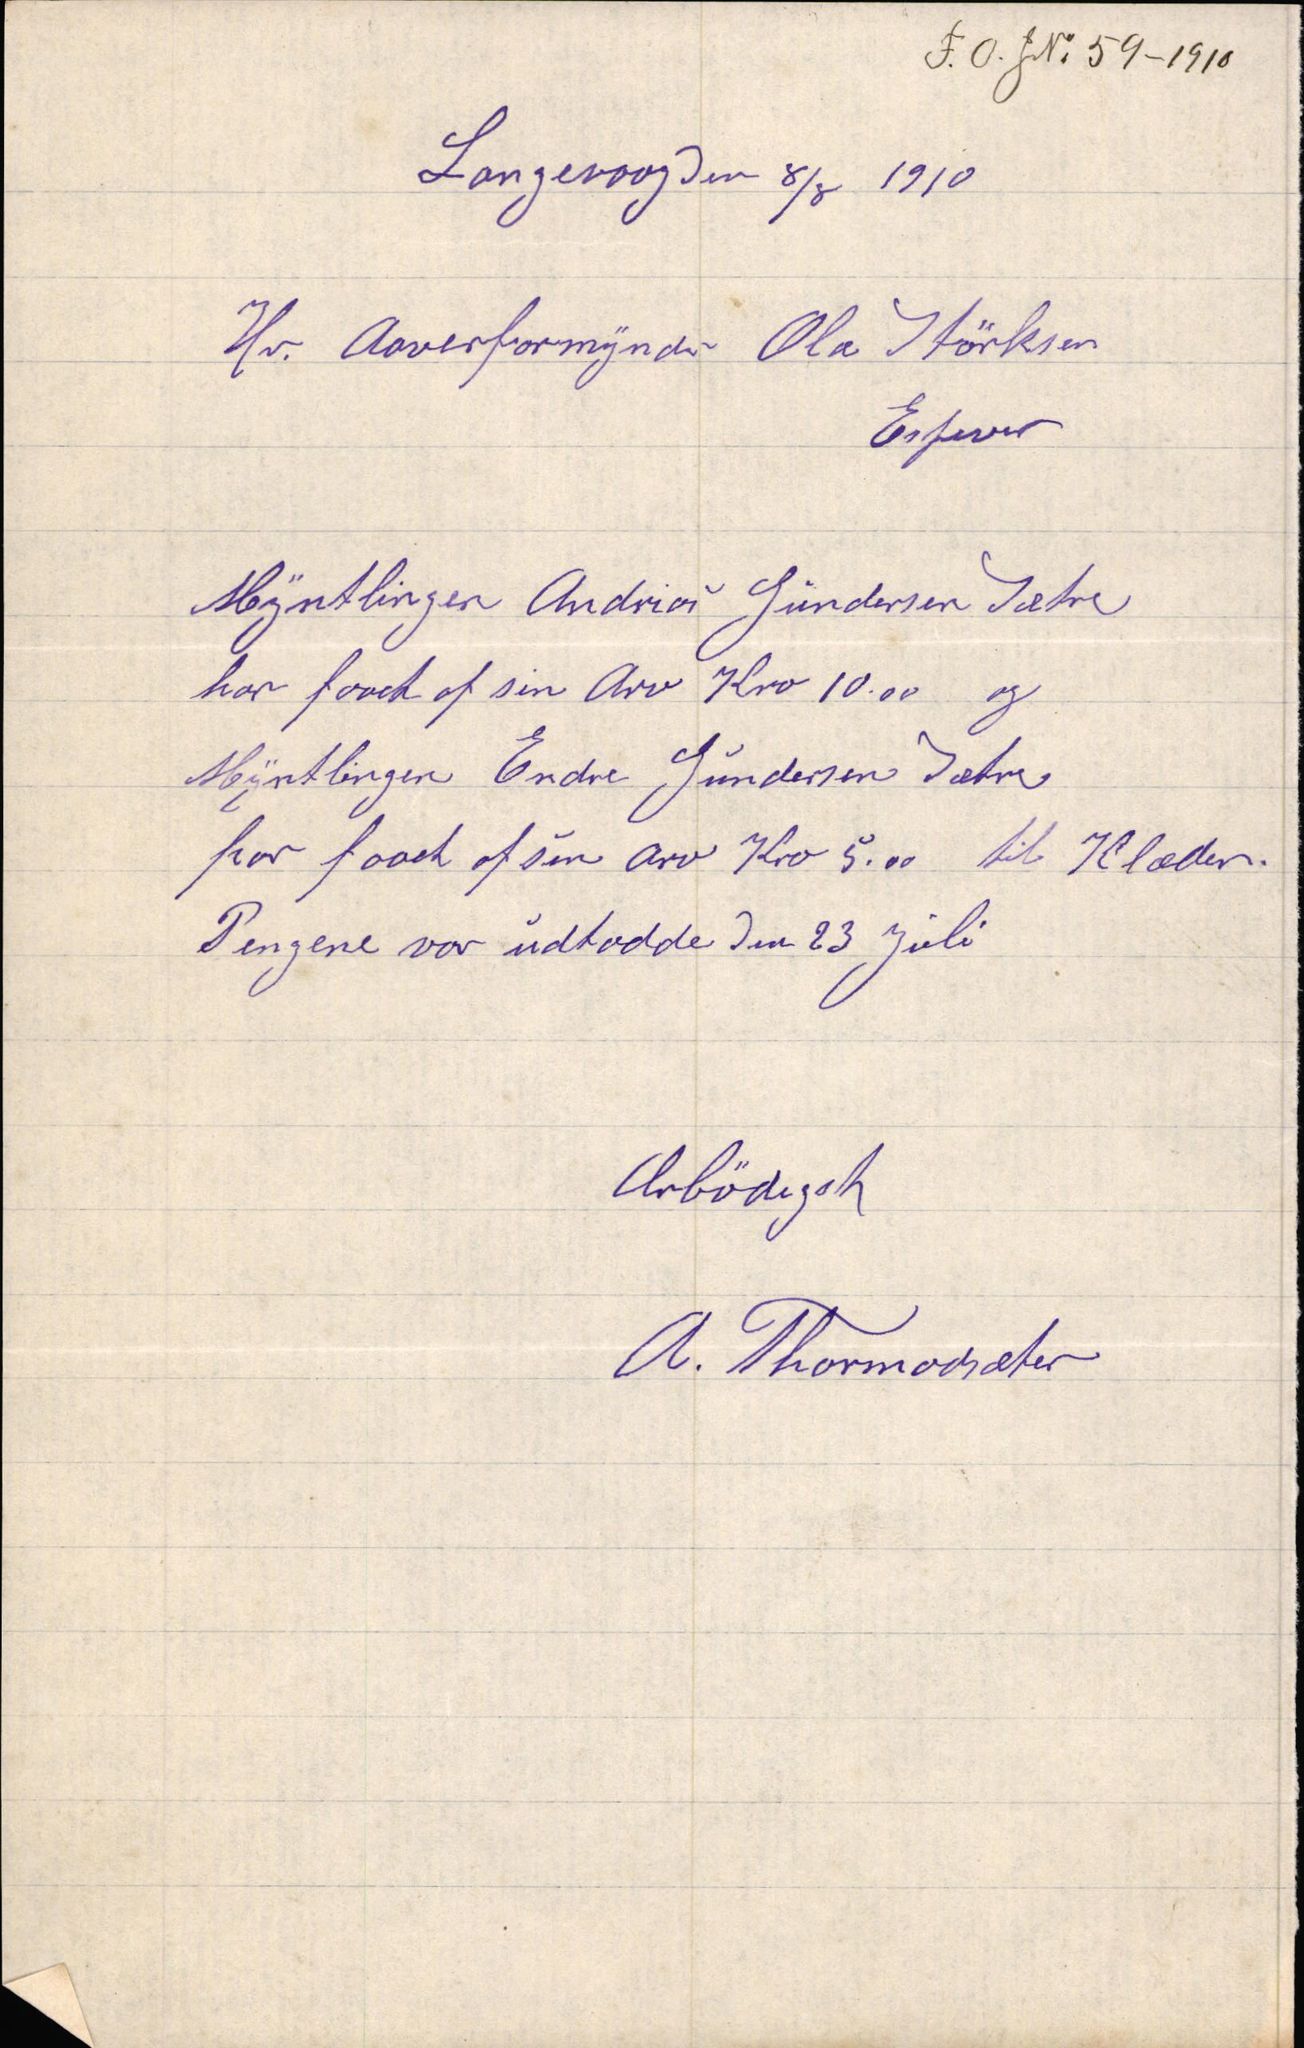 F. O. J№ 59-1910
Langevaag den 8/8 1910
Hr. Aaverformÿnder Ola Störksen
Espevær
Mÿntlingen Andrias Gundersen Sætre
har faaet af sin Arv Kro 10.00 og
Mÿntlingen Endre Gundersen Sætre
har faaet af sin arv Kro 5.00 til Klæder.
Pengene var udtadde den 23 Juli
Arbödigst
A. Thormodsæter